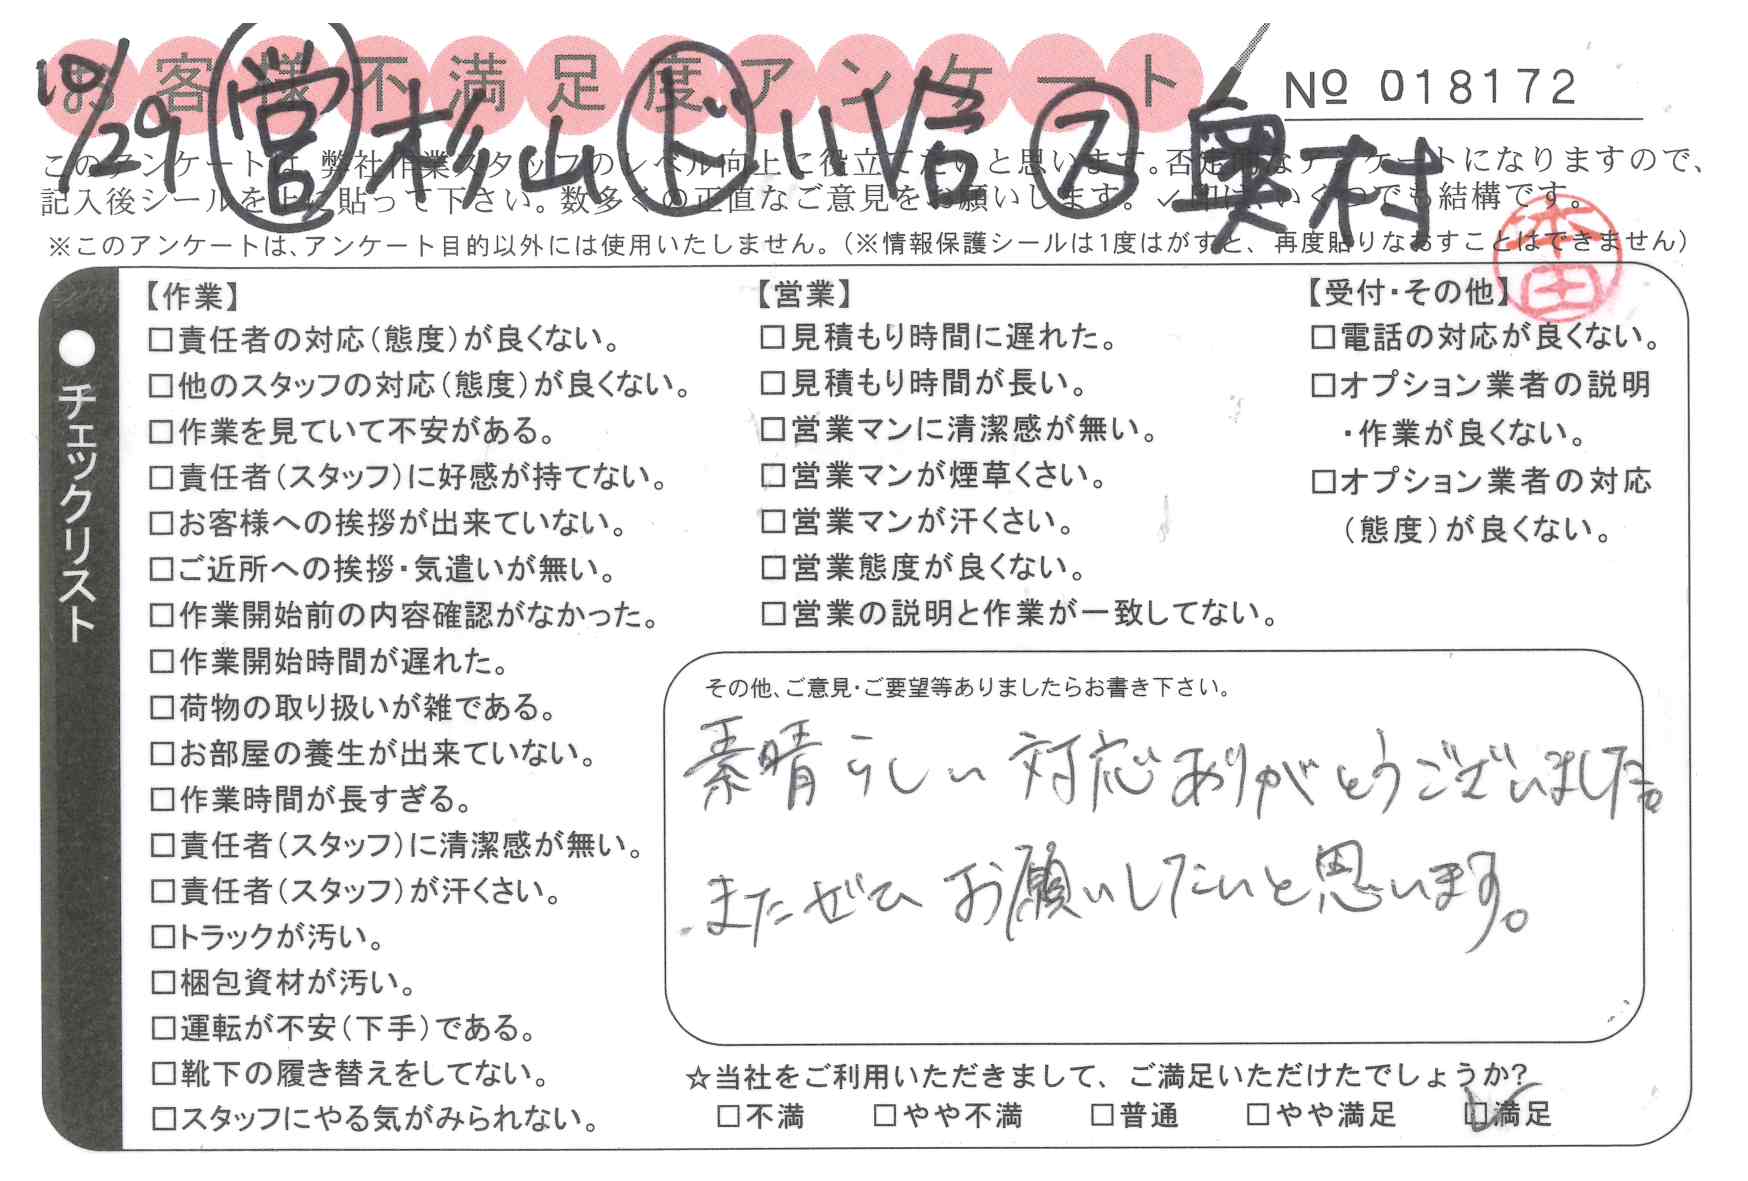 お客様不満足度アンケート
№ 018172
10/29 営 杉山 ド 川合 ス 奥村
このアンケートは、弊社作業スタッフのレベル向上に役立てたいと思います。否定的なアンケートになりますので、
記入後シールを上に貼って下さい。数多くの正直なご意見をお願いします。✓印は、いくつでも結構です。
※このアンケートは、アンケート目的以外には使用いたしません。(※情報保護シールは1度はがすと、再度貼りなおすことはできません)
本田
●チェックリスト
【作業】
□責任者の対応(態度)が良くない。
□他のスタッフの対応(態度)が良くない。
□作業を見ていて不安がある。
□責任者(スタッフ)に好感が持てない。
□お客様への挨拶が出来ていない。
□ご近所への挨拶・気遣いが無い。
□作業開始前の内容確認がなかった。
□作業開始時間が遅れた。
□荷物の取り扱いが雑である。
□お部屋の養生が出来ていない。
□作業時間が長すぎる。
□責任者(スタッフ)に清潔感が無い。
□責任者(スタッフ)が汗くさい。
□トラックが汚い。
□梱包資材が汚い。
□運転が不安(下手)である。
□靴下の履き替えをしてない。
□スタッフにやる気がみられない。
【営業】
□見積もり時間に遅れた。
□見積もり時間が長い。
□営業マンに清潔感が無い。
□営業マンが煙草くさい。
□営業マンが汗くさい。
□営業態度が良くない。
□営業の説明と作業が一致してない。
【受付・その他】
□電話の対応が良くない。
□オプション業者の説明
・作業が良くない。
□オプション業者の対応
(態度)が良くない。
その他、ご意見・ご要望等ありましたらお書き下さい。
素晴らしい対応ありがとうございました。
またぜひお願いしたいと思います。
☆当社をご利用いただきまして、ご満足いただけたでしょうか?
□不満 □やや不満 □普通 □やや満足 ☑満足